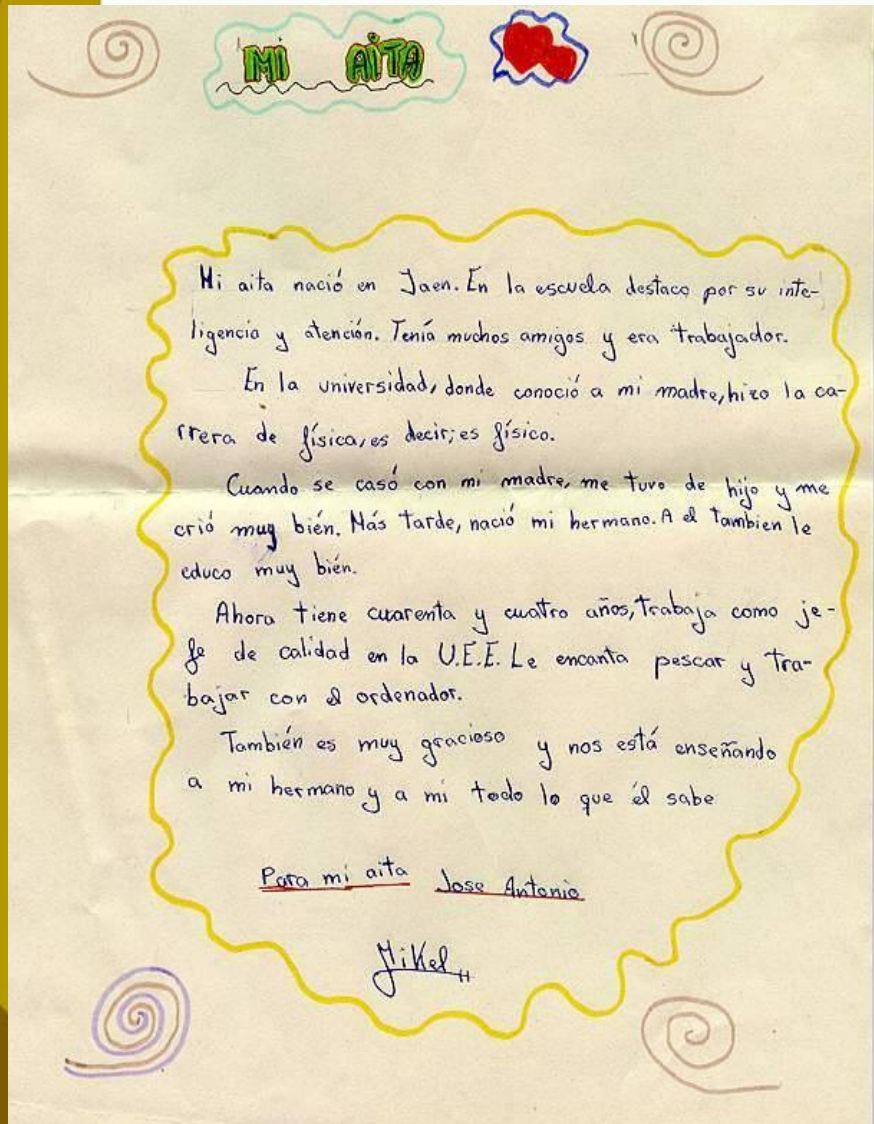 MI AITA
Mi aita nació en Jaen. En la escuela destaco por su inte-
ligencia y atención. Tenía muchos amigos y era trabajador.
En la universidad, donde conoció a mi madre, hizo la ca-
rrera de física, es decir; es físico.
Cuando se casó con mi madre, me tuvo de hijo y me
crió muy bién. Más tarde, nació mi hermano. A el tambien le
educo muy bién.
Ahora tiene cuarenta y cuatro años, trabaja como je-
fe de calidad en la U.E.E. Le encanta pescar y tra-
bajar con el ordenador.
También es muy gracioso y nos está enseñando
a mi hermano y a mi todo lo que él sabe
Para mi aita Jose Antonio
Mikel